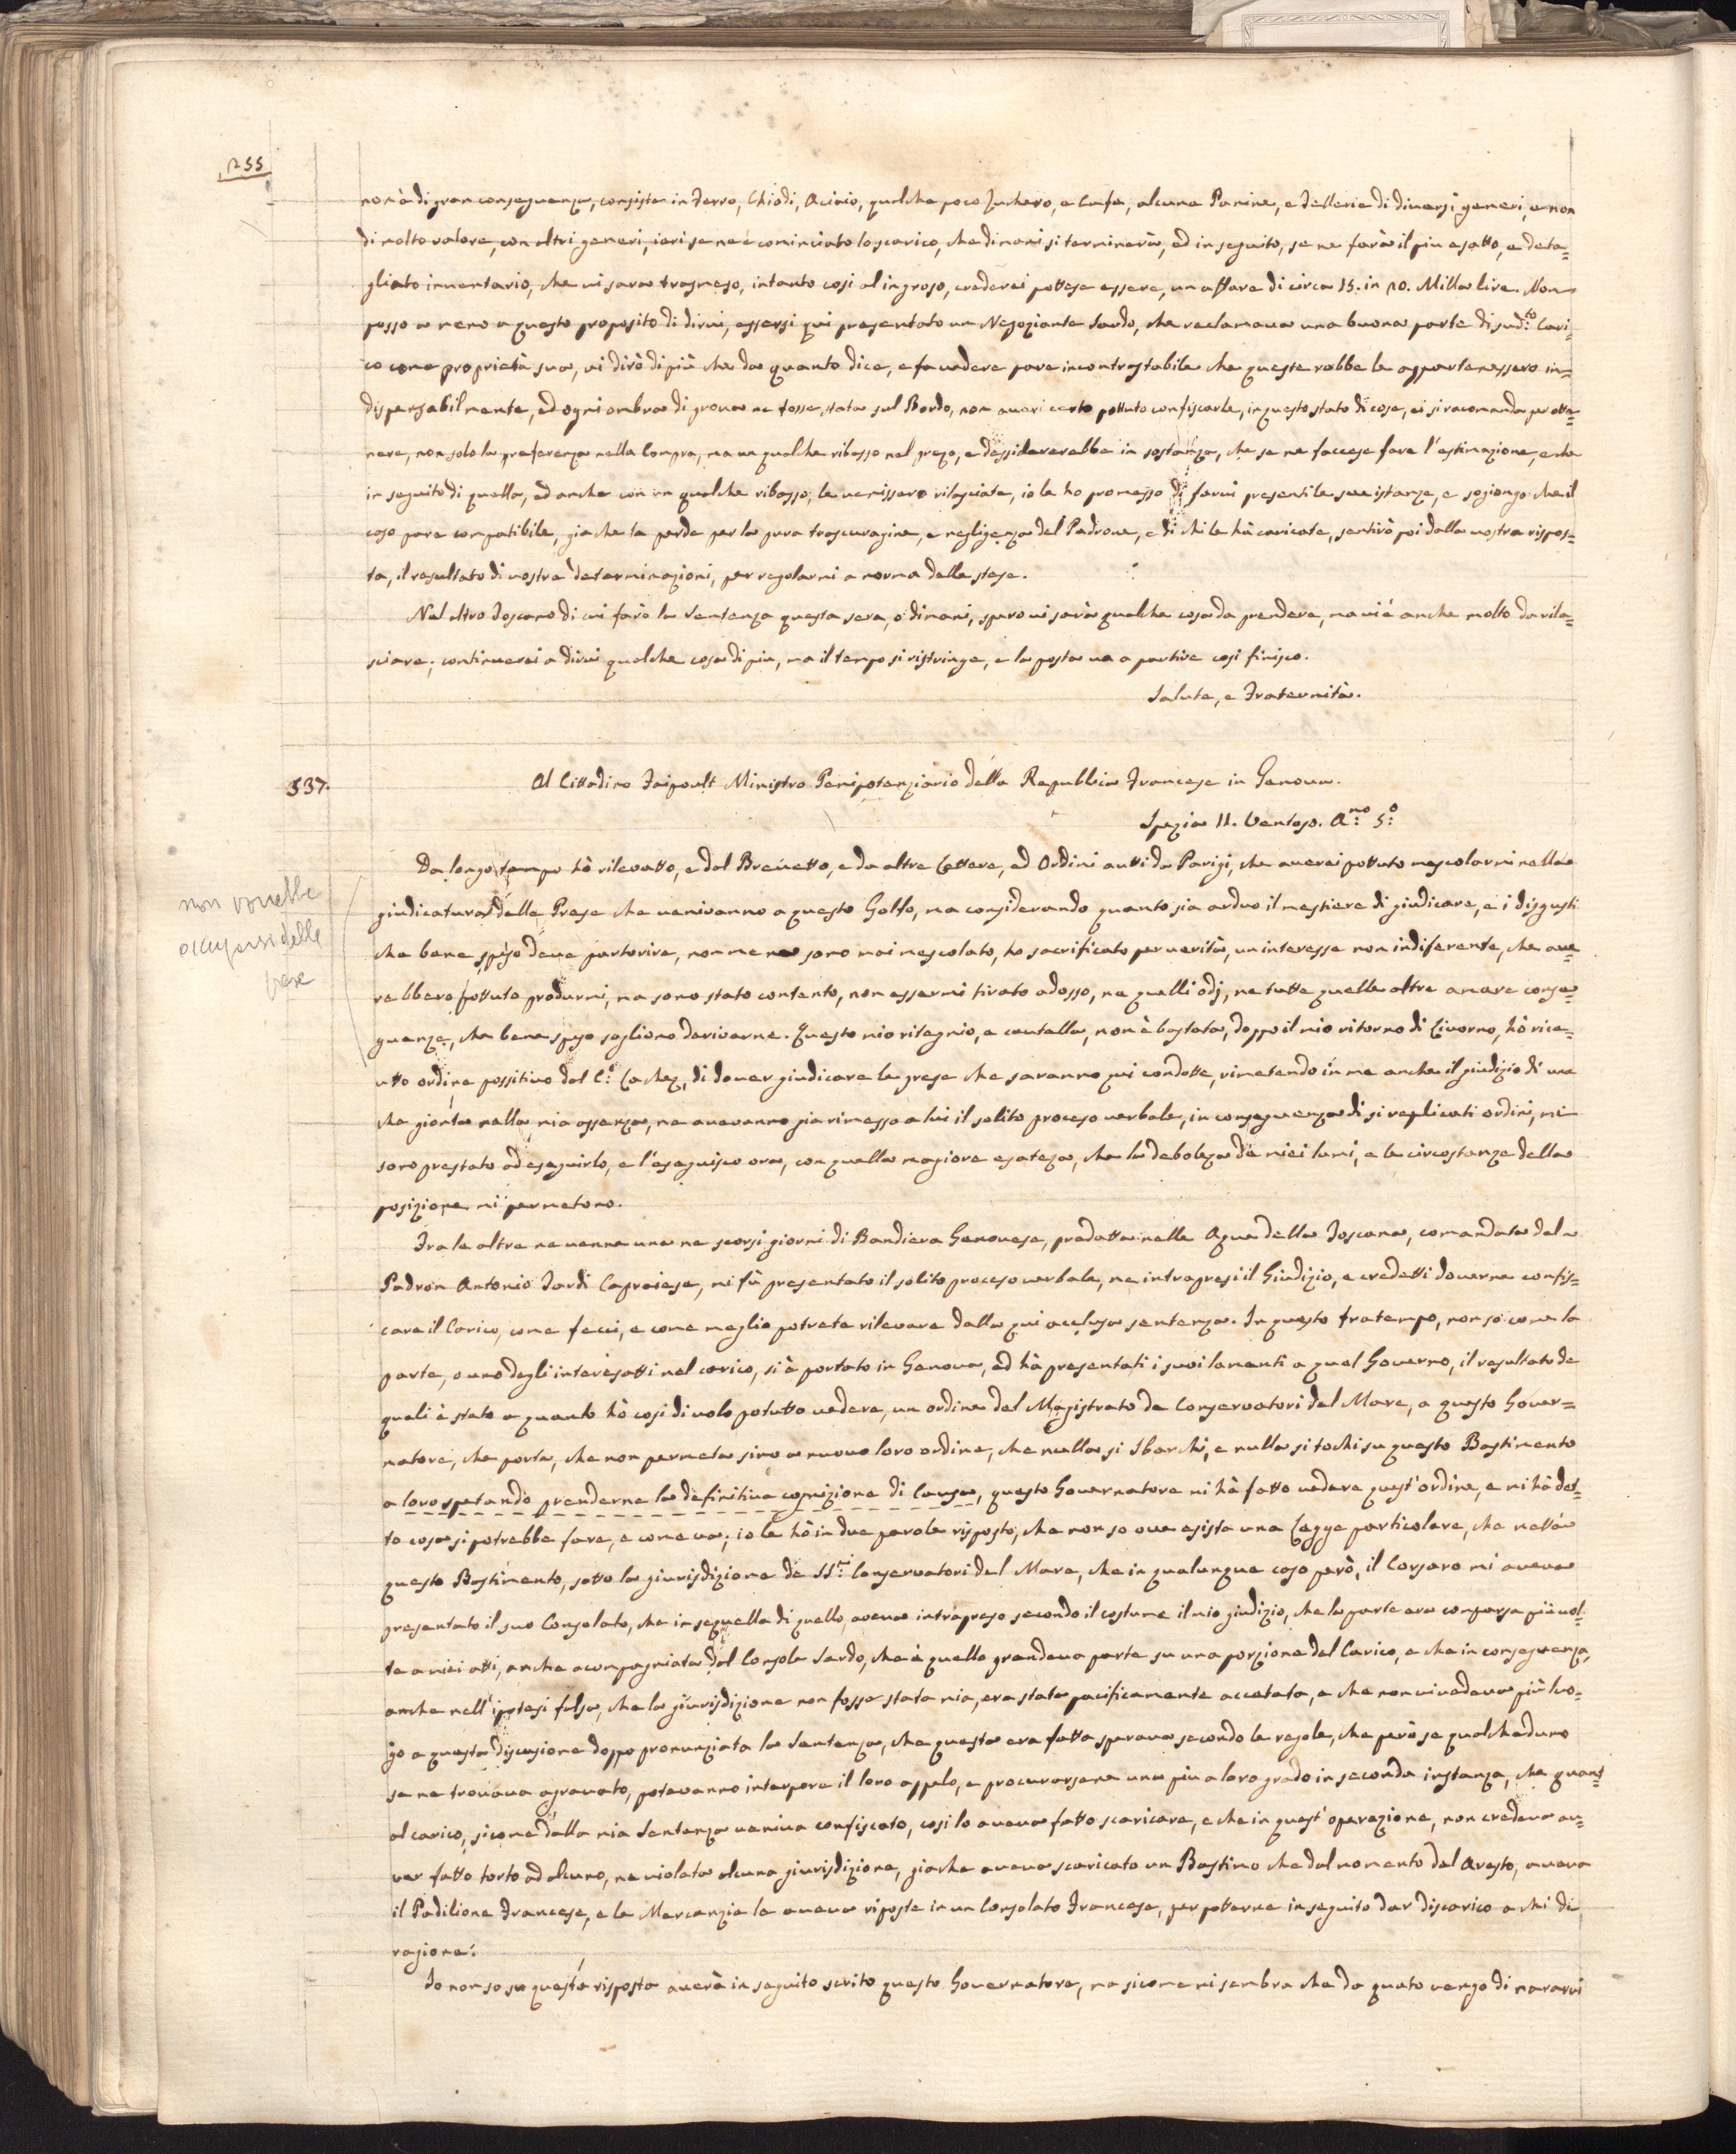 255
non è di gran conseguenza, consiste in Ferro, Chiodi, Aciaio, qualche poco Zuchero, e Cafe, alcune Panine, e Tellerie di diversi generi, e non
di molto valore, con altri generi, ieri se ne è cominciato lo scarico, che dimani si terminerà, ed in seguito, se ne farà il piu esatto, e deta=
gliato inventario, che vi sara trasmesso, intanto cosi al ingroso, crederei pottese essere, un affare di circa 15. in 20. Milla lire. Non
posso a meno a questo proposito di dirvi, essersi qui presentato un Negoziante Sardo, che reclamava una buona parte di sud.to Cari=
co come proprietà sua, vi dirò di più che da quanto dice, e fa vedere pare incontrastabile che queste robbe le appartenessero in=
dispensabilmente, ed ogni ombra di prova ne fosse stata sul Bordo, non averi certo pottuto confiscarle, in questo stato di cose, ei si racomanda per otte=
nere, non solo la preferenza nella Compra, ma un qualche ribasso nel prezo, e dessidererebbe in sostanza, che se ne facesse fare l'estimazione, e che
in seguito di quella, ed anche con un qualche ribasso, le venissero rilasciate, io le ho promesso di farvi presenti le sue istanze, e sogiongo che il
caso pare compatibile, gia che la perde per la pura trascuragine, e negligenza del Padrone, e di chi le hà caricate, sentirò poi dalla vostra rispos=
ta, il resultato di vostre determinazioni, per regolarmi a norma delle stese.
Nel altro Toscano di cui farò la Sentenza questa sera, o dimani, spero vi sarà qualche cosa da prendere, ma vi é anche molto da rila=
sciare; continuerei a dirvi qualche cosa di piu, ma il tempo si ristringe, e la posta va a partire cosi finisco.
Salute, e Fraternità.
537.
Al Cittadino Faipoult Ministro Penipotenziario della Republica Francese in Genova.
Spezia 11. Ventoso. A:no 5:o
non vorrebbe
occuparsi delle
prese
Da longo tempo hò rilevatto, e dal Brevetto, e da altre Lettere, ed Ordini autti da Parigi, che averei pottuto mescolarmi nella
giudicatura delle Prese che venivanno a questo Golfo, ma considerando quanto sia arduo il mestiere di giudicare, e i disgusti
che bene speso deve partorire, non me ne sono mai mescolato, ho sacrificato per verità, un interesse non indiferente, che ave=
rebbero pottuto produrmi, ma sono stato contento, non essermi tirato adosso, ne quelli odj, ne tutte quelle altre amare conse=
guenze, che bene speso sogliono derivarne. Questo mio ritegnio, e cautella, non è bastata, doppo il mio ritorno di Livorno, hò rice=
utto ordine possitivo dal C:o Lachez, di dover giudicare le prese che saranno qui condotte, rimetendo in me anche il giudizio di una
che gionta nella mia assenza, ne avevanno gia rimesso a lui il solito proceso verbale, in conseguenza di si replicati ordini, mi
sono prestato ad eseguirlo, e l'eseguisco ora, con quella magiore esateza, che la deboleza de miei lumi, e le circostanze della
posizione mi permetono.
Fra le altre ne venne una ne scorsi giorni di Bandiera Genovese, predatta nelle Aque della Toscana, comandata dal
Padron Antonio Sardi Capraiese, mi fù presentato il solito proceso verbale, ne intrapresi il Giudizio, e credetti doverne confis=
care il Carico, come feci, e come meglio potrete rilevare dalla qui acclusa sentenza. In questo fratempo, non so come la
parte, o uno degli interesatti nel carico, si è portato in Genova, ed hà presentati i suoi lamenti a quel Governo, il resultato de
quali è stato a quanto hò cosi di volo potutto vedere, un ordine del Magistrato de Conservatori del Mare, a questo Gover=
natore, che porta, che non permeta sino a nuovo loro ordine, che nulla si Sbarchi, e nulla si tochi su questo Bastimento
a loro spetando prenderne la definitiva cognizione di Causa, questo Governatore mi hà fatto vedere quest'ordine, e mi hà det=
to cosa si potrebbe fare, e come va; io le hò in due parole risposto, che non so ove esista una Legge particolare, che metta
questo Bastimento, sotto la giurisdizione de SS:ri Conservatori del Mare, che in qualunque caso però, il Corsaro mi aveva
presentato il suo Consolato, che in sequella di quello, aveva intrapreso secondo il costume il mio giudizio, che la parte era comparsa più vol=
te a miei atti, anche acompagniata dal Console Sardo, che è quello prendeva parte su una porzione del Carico, e che in conseguenza,
anche nell'ipotesi falsa, che la giurisdizione non fosse stata mia, era stata pacificamente accetata, e che non vi vedeva più luo=
go a questa discusione doppo pronunziata la Sentenza, che questa era fatta sperava secondo le regole, che però se qualcheduno
se ne trovava agravato, potevanno interpore il loro appelo, e procurarsene una piu a loro grado in seconda instanza, che quant
al carico, sicome dalla mia Sentenza veniva confiscato, cosi lo aveva fatto scaricare, e che in quest'operazione, non credeva av=
ver fatto torto ad alcuno, ne violata alcuna giurisdizione, giache aveva scaricato un Bastimo che dal momento del Aresto, aveva
il Padilione Francese, e le Mercanzie le aveva riposte in un Consolato Francese, per potterne in seguito dar discarico a chi di
ragione.
Io non so su questa risposta averà in seguito scrito questo Governatore, ma sicome mi sembra che da quato vengo di nararvi